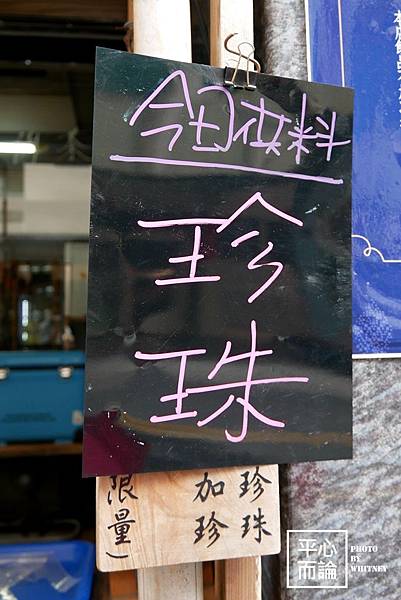 今日供料
珍
珠
珍珠
加珍
限量)
平心
而論
PHOTO
BY
WHITNEY